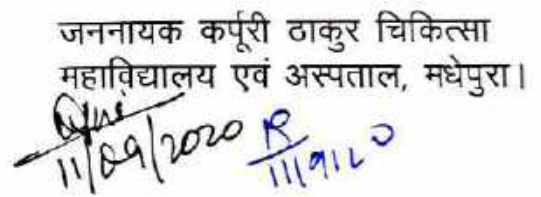 जननायक कर्पूरी ठाकुर चिकित्सा
महाविद्यालय एवं अस्पताल, मधेपुरा।
11/09/2020
11/9/20